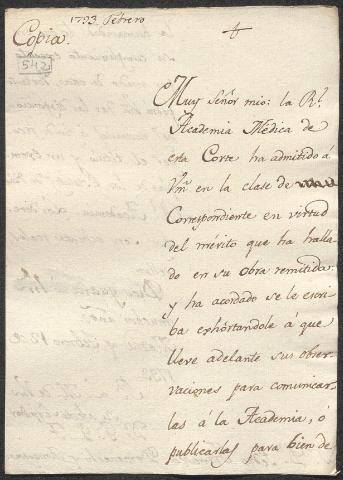 1793 Febrero
Copia.
542
Muy Señor mio: la Rl.
Academia Médica de
esta Corte ha admitido á
Vm en la clase de
Correspondiente en virtud
del mérito que ha halla
do en su obra remitida:
y ha acordado se le escri
ba exhòrtandole á que
lleve adelante sus obser
vaciones para comunicar
las á la Academia, ó
publicarlas para bien de